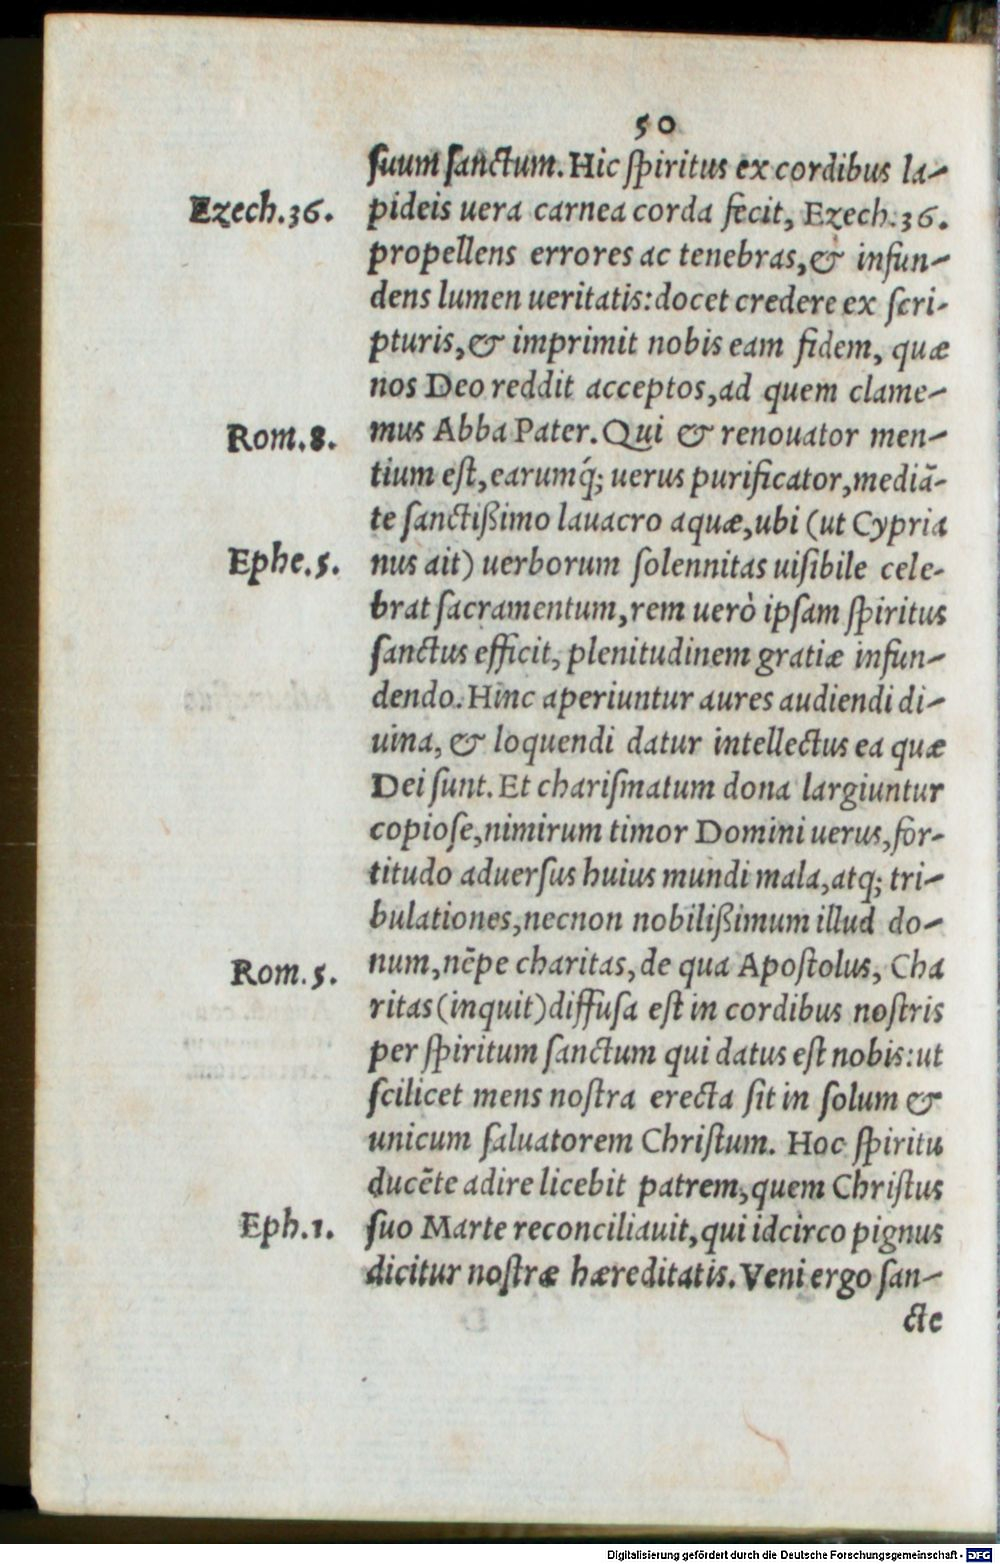 50
suum sanctum. Hic spiritus ex cordibus la-
Ezech.36. pideis uera carnea corda fecit, Ezech.36.
propellens errores ac tenebras, & infun-
dens lumen ueritatis: docet credere ex scri-
pturis, & imprimit nobis eam fidem, quæ
nos Deo reddit acceptos, ad quem clame-
Rom.8. mus Abba Pater. Qui & renouator men-
tium est, earumq́; uerus purificator, mediā-
te sanctißimo lauacro aquæ, ubi (ut Cypria
Ephe.5. nus ait) uerborum solennitas uisibile cele-
brat sacramentum, rem uerò ipsam spiritus
sanctus efficit, plenitudinem gratiæ infun-
dendo. Hinc aperiuntur aures audiendi di-
uina, & loquendi datur intellectus ea quæ
Dei sunt. Et charismatum dona largiuntur
copiose, nimirum timor Domini uerus, for-
titudo aduersus huius mundi mala, atq; tri-
bulationes, necnon nobilißimum illud do-
Rom.5. num, nēpe charitas, de qua Apostolus, Cha
ritas (inquit) diffusa est in cordibus nostris
per spiritum sanctum qui datus est nobis: ut
scilicet mens nostra erecta sit in solum &
unicum saluatorem Christum. Hoc spiritu
ducēte adire licebit patrem, quem Christus
Eph.1. suo Marte reconciliauit, qui idcirco pignus
dicitur nostræ hæreditatis. Veni ergo san-
cte
Digitalisierung gefördert durch die Deutsche Forschungsgemeinschaft - DFG